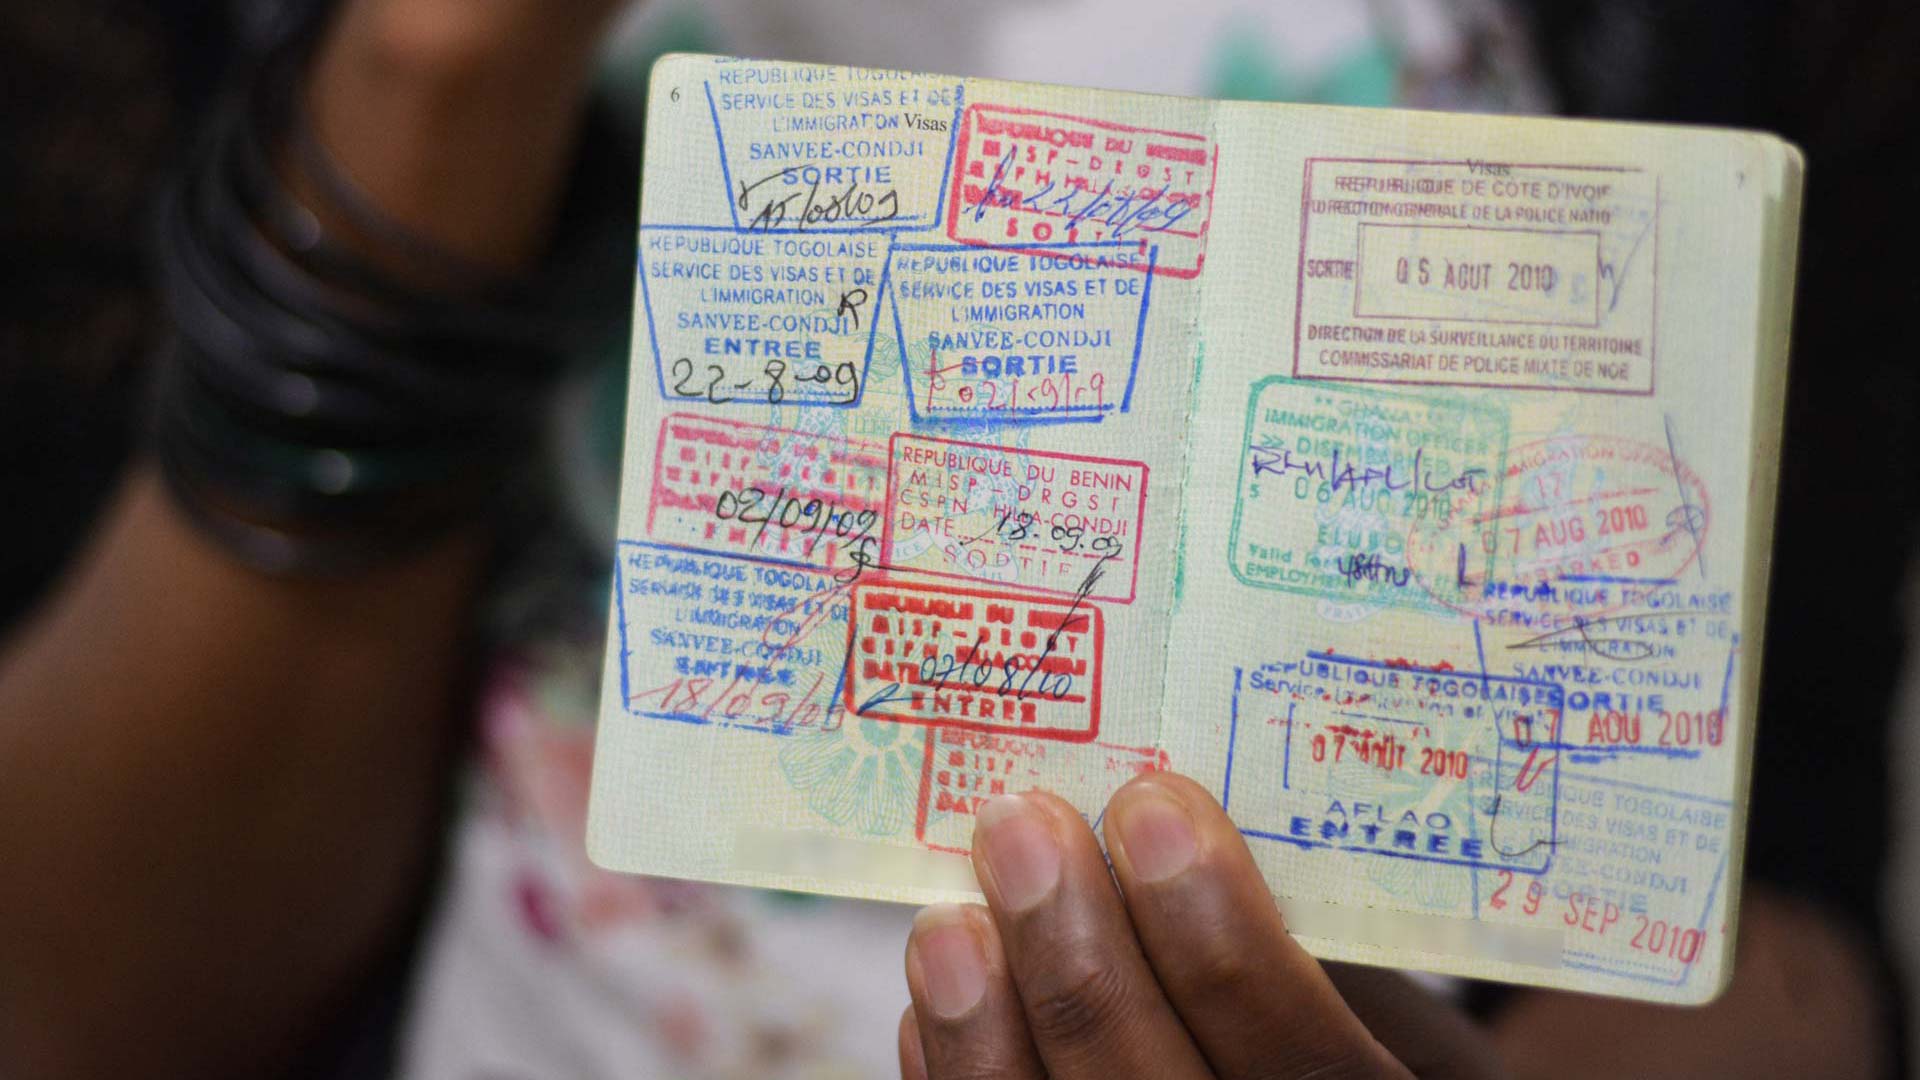 6
REPUBLIQUE TOGOLAISE
SERVICE DES VISAS ET DE
L'IMMIGRATION
Visas
SANVEE-CONDJI
SORTIE
15/08/09
REPUBLIQUE DU
MISP-DRGST
22/08/09
SORTIE
REPUBLIQUE TOGOLAISE
SERVICE DES VISAS ET DE
L'IMMIGRATION
R
SANVEE-CONDJI
ENTREE
22-8-09
REPUBLIQUE TOGOLAISE
SERVICE DES VISAS ET DE
L'IMMIGRATION
SANVEE-CONDJI
SORTIE
02/09/09
REPUBLIQUE DU BENIN
MISP-DRGST
CSPN HILLA-CONDJI
DATE
18.09.09
SORTIE
REPUBLIQUE TOGOLAISE
SERVICE DES VISAS ET DE
L'IMMIGRATION
SANVEE-CONDJI
18/09/09
REPUBLIQUE DU
CSPN HILLA-CONDJI
DATE
07/08/10
ENTREE
REPUBLIQUE
MISP
CSPN
DATE
7
Visas
REPUBLIQUE DE COTE D'IVOIR
DIRECTION GENERALE DE LA POLICE NATIO
SORTIE
05 AOUT 2010
DIRECTION DE LA SURVEILLANCE DU TERRITOIRE
COMMISSARIAT DE POLICE MIXTE DE NOE
"GHANA"
IMMIGRATION OFFICER
DISEMBARKED
06 AUG 2010
ELUBO
Valid for
EMPLOYMENT
IMMIGRATION OFFICER
17
07 AUG 2010
REPUBLIQUE TOGOLAISE
SERVICE DES VISAS ET DE
L'IMMIGRATION
SANVEE-CONDJI
SORTIE
07 AOU 2010
REPUBLIQUE TOGOLAISE
Service Immigration et
07 AOUT 2010
AFLAO
ENTREE
REPUBLIQUE TOGOLAISE
SERVICE DES VISAS ET DE
L'IMMIGRATION
SANVEE-CONDJI
SORTIE
29 SEP 2010